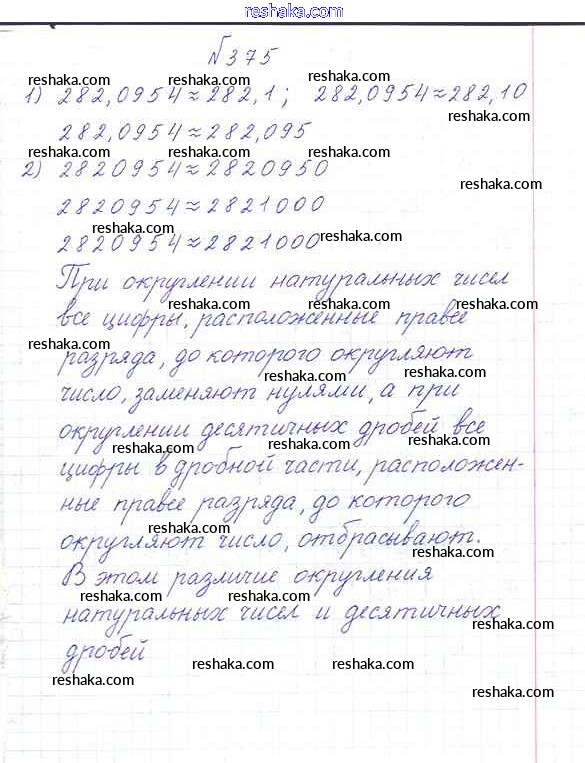 reshaka.com
№375
reshaka.com reshaka.com reshaka.com
1) 282,0954≈282,1; 282,0954≈282,10
reshaka.com
282,0954≈282,095
reshaka.com reshaka.com reshaka.com
2) 2820954≈2820950
reshaka.com
2820954≈2821000
reshaka.com
2820954≈2821000
reshaka.com
При округлении натуральных чисел
reshaka.com reshaka.com reshaka.com
все цифры, расположенные правее
reshaka.com
разряда, до которого округляют
reshaka.com reshaka.com
число, заменяют нулями, а при
округлении десятичных дробей все
reshaka.com reshaka.com reshaka.com
цифры в дробной части, расположен-
ные правее разряда, до которого
reshaka.com
округляют число, отбрасывают.
reshaka.com
В этом различие округления
reshaka.com reshaka.com
натуральных чисел и десятичных
reshaka.com
дробей
reshaka.com reshaka.com
reshaka.com reshaka.com